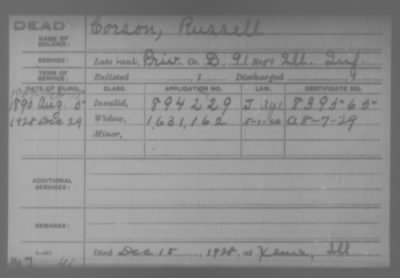 DEAD
NAME OF SOLDIER: Corson, Russell
SERVICE: Late rank, Priv. Co. D, 91 Reg't Ill. Inf.
TERM OF SERVICE: Enlisted , 1 Discharged , 1
DATE OF FILING. CLASS. APPLICATION NO. LAW. CERTIFICATE NO.
1890 Aug. 5 Invalid, 894229 839565
1928 Dec 29 Widow, 1,631,162 5-1-20 A 8-7-29
Minor,
ADDITIONAL SERVICES:
REMARKS:
Died Dec 18, 1928, at Xenia, Ill